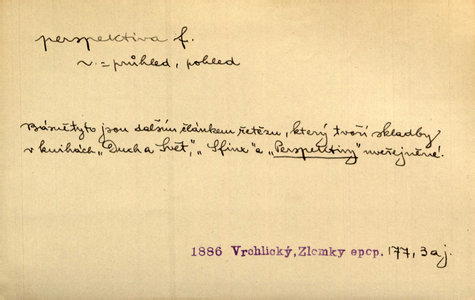 perspektiva f.
v. = průhled, pohled
Básně tyto jsou dalším článkem řetězu, který tvoří skladby
v knihách „Duch a Svět,“ „Sfinx“ a „Perspektivy“ uveřejněné.
1886 Vrchlický, Zlomky epop. 177, 3aj.